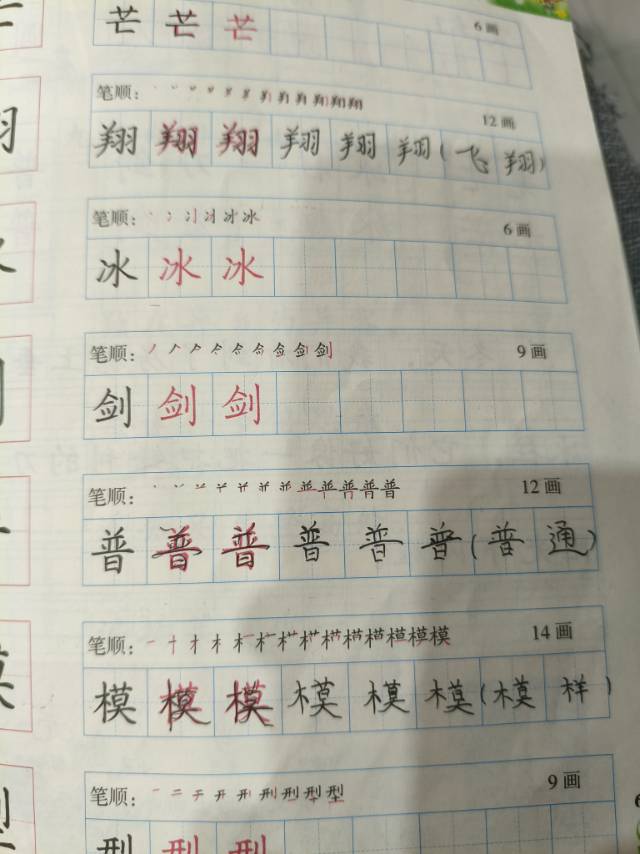 芒 芒 芒
6画
笔顺:
12画
翔 翔 翔 翔 翔 翔 (飞 翔)
笔顺:
6画
冰 冰 冰
笔顺:
9画
剑 剑 剑
笔顺:
12画
普 普 普 普 普 普 (普 通)
笔顺:
14画
模 模 模 模 模 模 (模 样)
笔顺:
9画
型 型 型